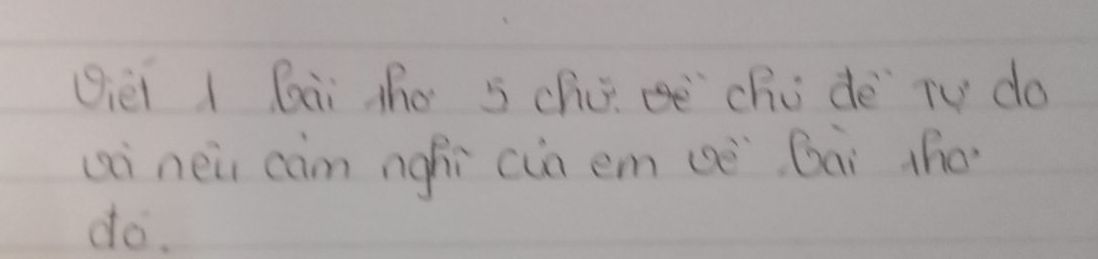 Viết 1 bài thơ 5 chữ về chủ đề tự do
và nêu cảm nghĩ của em về bài thơ
đó.